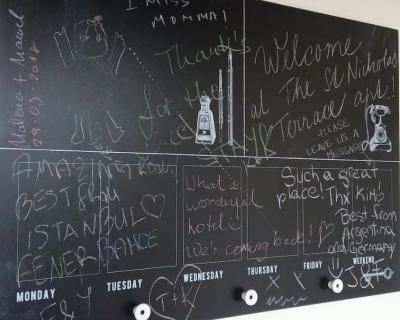 I MISS
MOMMA!
29.09.2018
Thanks
for the
STAY!
Welcome
at The St Nicholas
Terrace apt!
PLEASE
LEAVE US A
MESSAGE
AMAZING
BEST from
ISTANBUL♡
FENER BAHCE
What a
wonderful
hotel!
We're coming back! ♡
Such a great
place!
Thx Kiki♡
Best from
Argentina
and Germany
MONDAY
TUESDAY
WEDNESDAY
THURSDAY
FRIDAY
WEEKEND
T+K